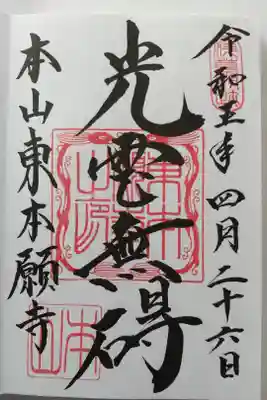 令和五年四月二十六日
光雲無碍
本山東本願寺
本山